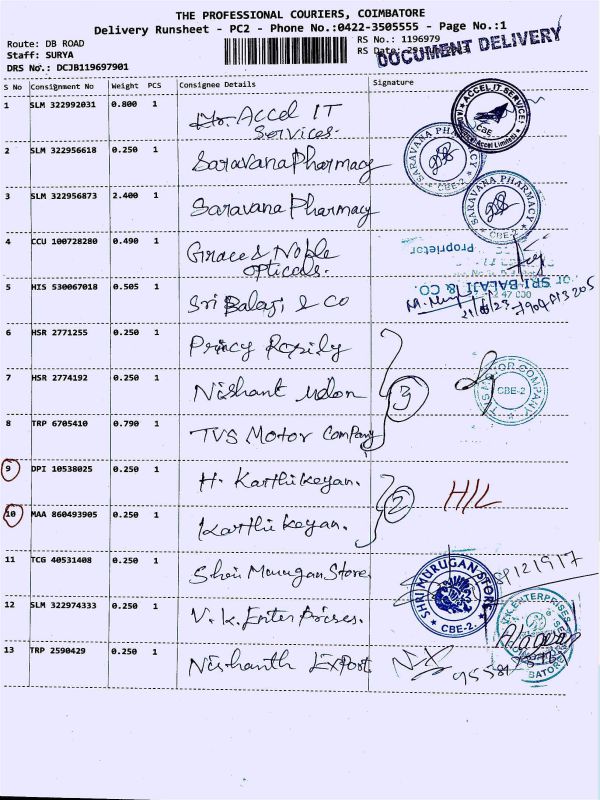 THE PROFESSIONAL COURIERS, COIMBATORE
Delivery Runsheet - PC2 - Phone No.:0422-3505555 - Page No.:1
Route: DB ROAD
RS No.: 1196979
Staff: SURYA
RS Date:
DOCUMENT DELIVERY
DRS No.: DCJB119697901
S No Consignment No Weight PCS Consignee Details Signature
1 SLM 322992031 0.800 1 Accel IT Services.
ACCEL IT SERVICES
CBE
2 SLM 322956618 0.250 1 Saravana Pharmacy
SARAVANA PHARMACY
CBE-2
3 SLM 322956873 2.400 1 Saravana Pharmacy
SARAVANA PHARMACY
CBE-2
4 CCU 100728280 0.490 1 Grace & Noble opticals.
Proprietor
5 HIS 530067018 0.505 1 Sri Balaji & Co
For SRI BALAJI & CO.
6 HSR 2771255 0.250 1
7 HSR 2774192 0.250 1 Nishant
3
TVS MOTOR COMPANY
CBE-2
8 TRP 6705410 0.790 1 TVS Motor Company
9 DPI 10538025 0.250 1 H. Karthikeyan.
2
H/L
10 MAA 860493905 0.250 1 Karthikeyan.
11 TCG 40531408 0.250 1 Shri Murugan Store
SHRI MURUGAN STORE
CBE-2
12 SLM 322974333 0.250 1 V.K. Enterprises.
V.K. ENTERPRISES
13 TRP 2590429 0.250 1 Nishanth Export